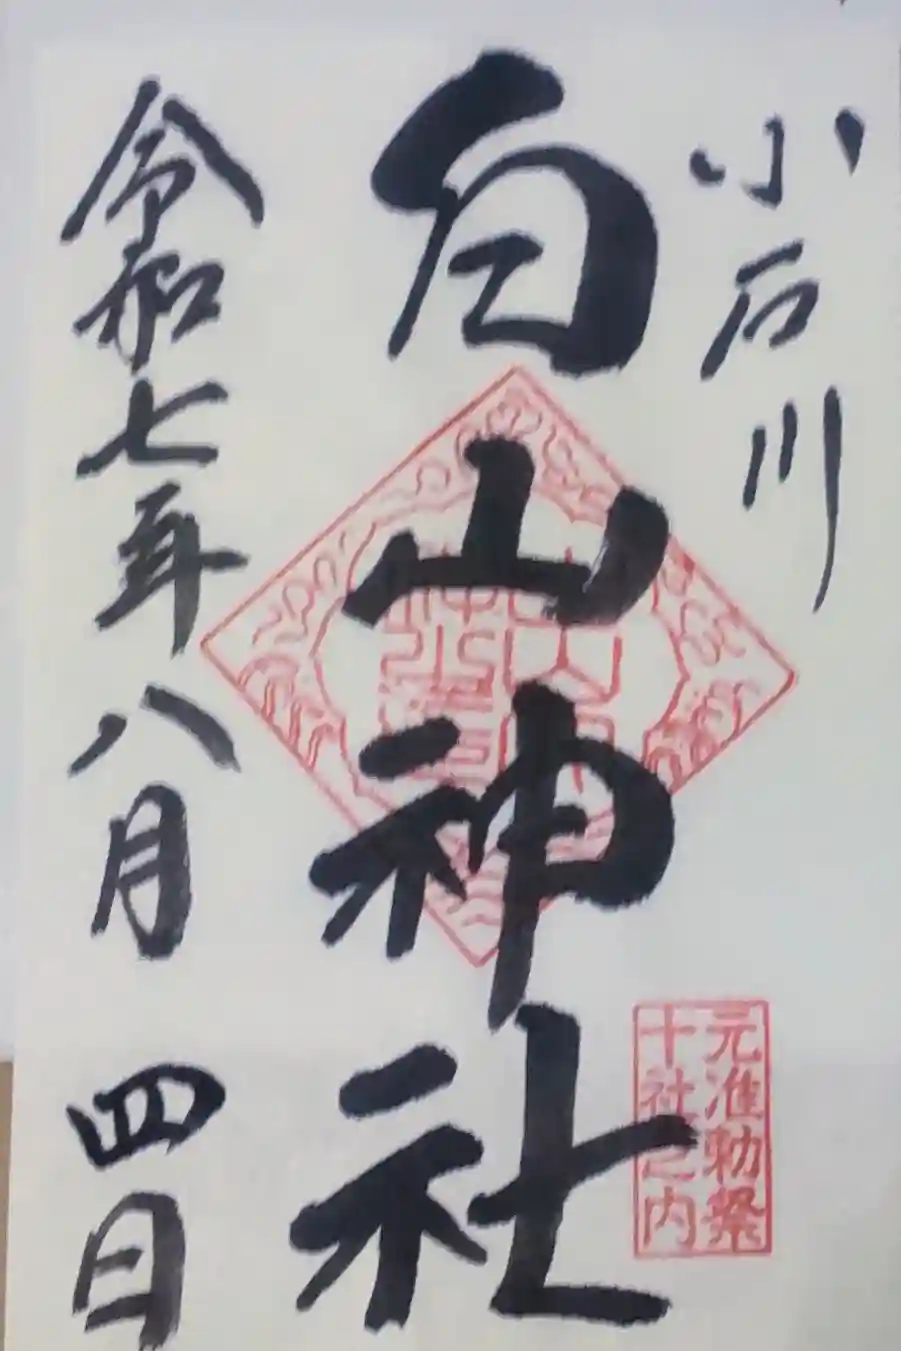 小石川
白山神社
令和七年八月四日
元准勅祭
十社之内